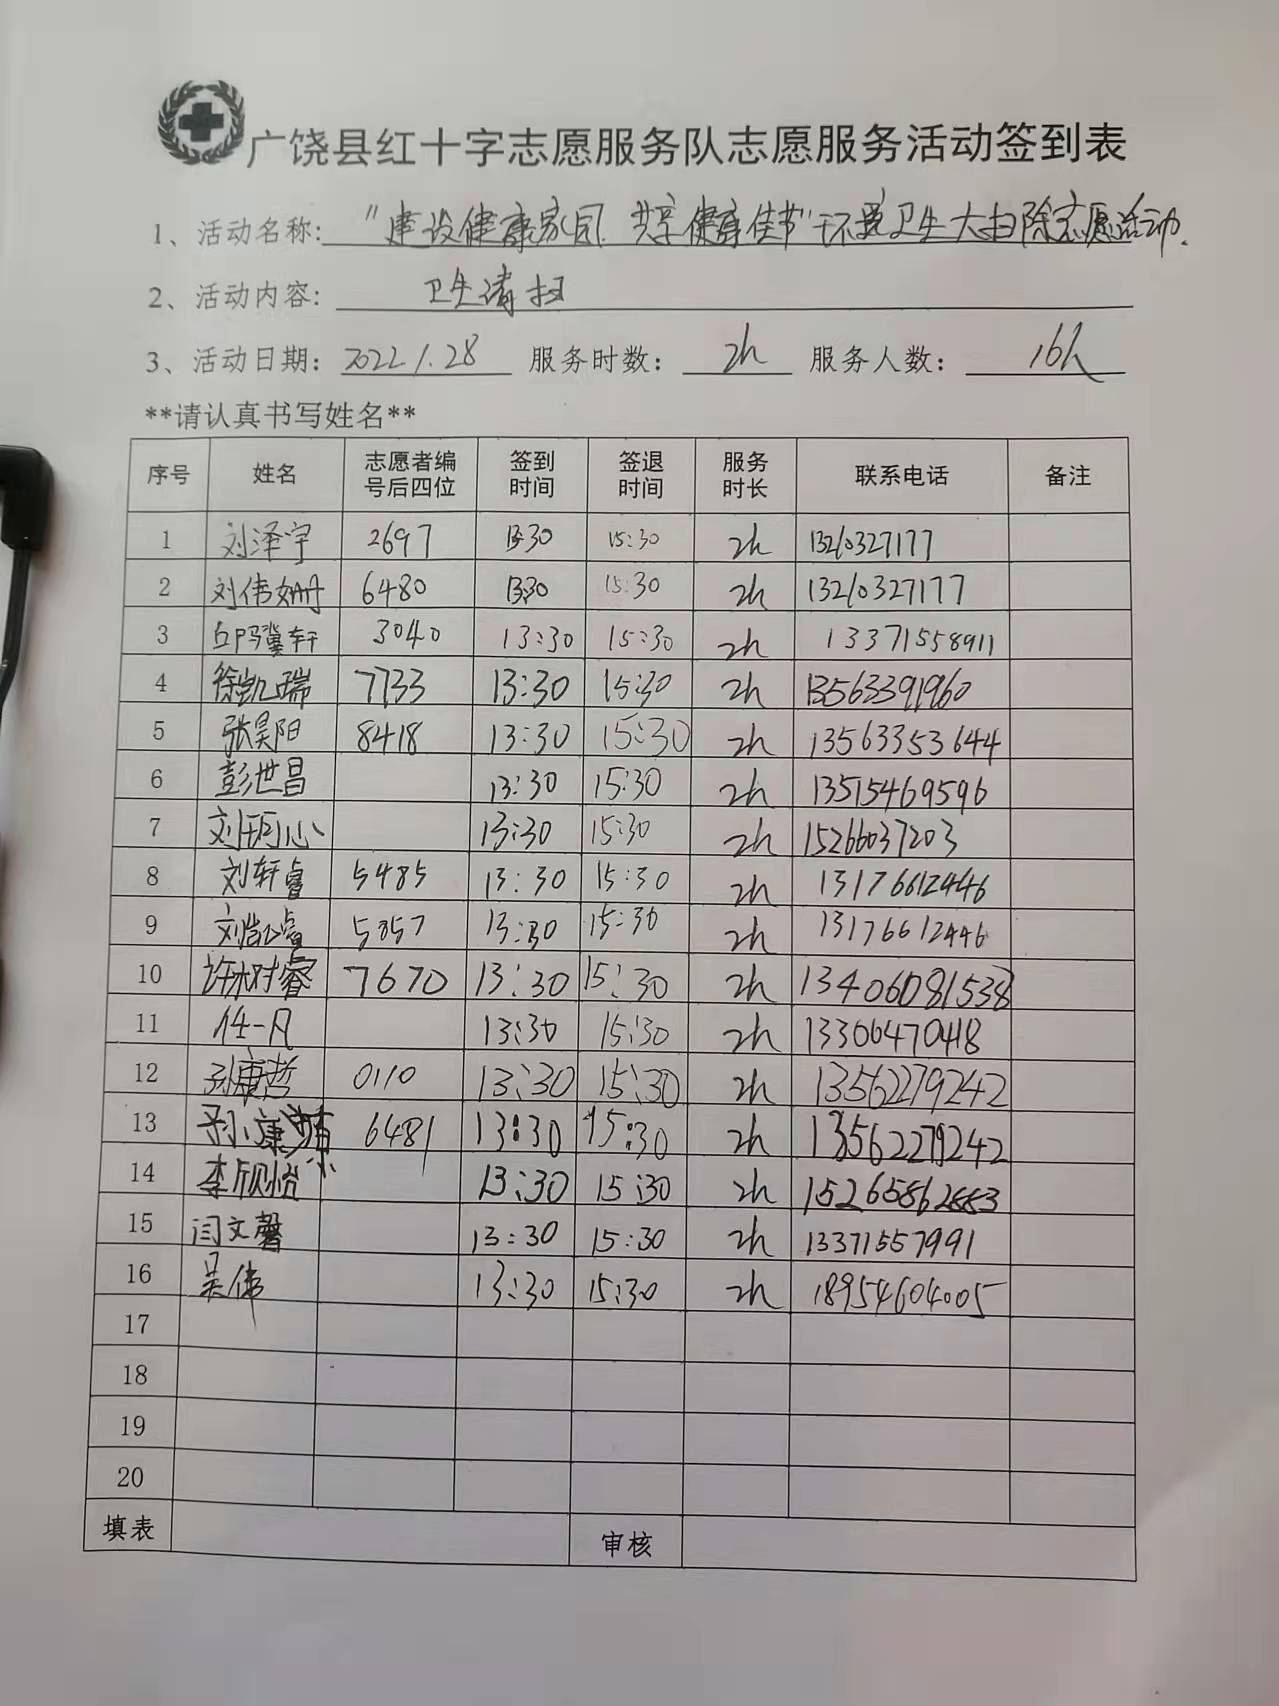 广饶县红十字志愿服务队志愿服务活动签到表
1、活动名称: "建设健康家园 共享健康佳节"环境卫生大扫除志愿活动.
2、活动内容: 卫生清扫
3、活动日期: 2022.1.28 服务时数: 2h 服务人数: 16人
**请认真书写姓名**
序号 姓名 志愿者编号后四位 签到时间 签退时间 服务时长 联系电话 备注
1 刘泽宇 2697 13:30 15:30 2h 13210327177
2 刘伟 6480 13:30 15:30 2h 13210327177
3 3040 13:30 15:30 2h 13371558911
4 徐凯瑞 7733 13:30 15:30 2h 13563391960
5 张昊阳 8418 13:30 15:30 2h 13563353644
6 彭世昌 13:30 15:30 2h 13515469596
7 刘玥心 13:30 15:30 2h 15266037203
8 刘轩睿 5485 13:30 15:30 2h 13176612446
9 刘凯睿 5357 13:30 15:30 2h 13176612446
10 许树睿 7670 13:30 15:30 2h 13406081538
11 任一凡 13:30 15:30 2h 13306470418
12 孙康哲 0110 13:30 15:30 2h 13562279242
13 孙康 6481 13:30 15:30 2h 13562279242
14 李欣怡 13:30 15:30 2h 15265862883
15 闫文馨 13:30 15:30 2h 13371557991
16 吴伟 13:30 15:30 2h 18954604005
17
18
19
20
填表 审核